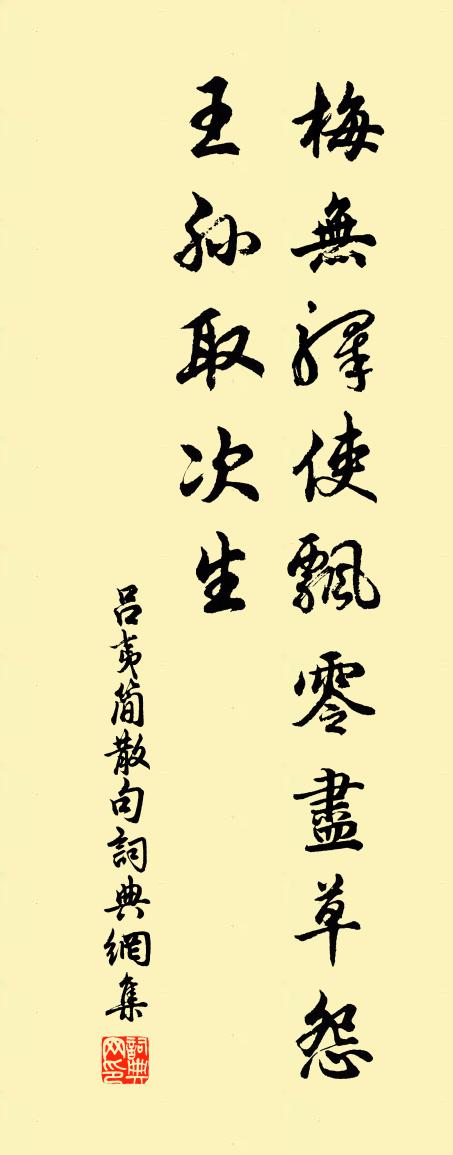 梅無驛使飄零盡草怨
王孫取次生
呂夷簡散句詞典網集
詞典网印